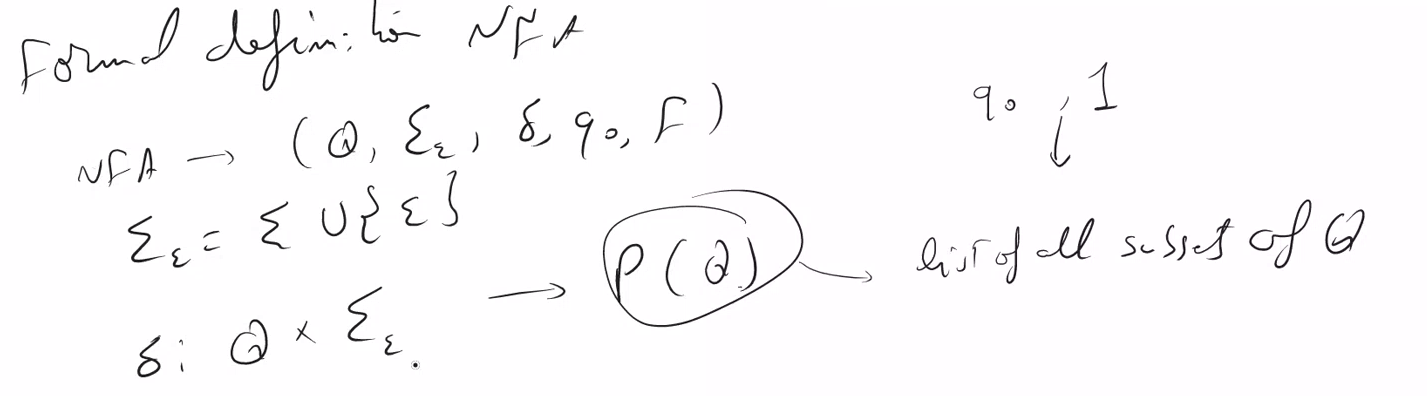 Formal definition NFA
NFA → (Q, Σε, δ, q₀, F)
q₀ , 1
↓
Σε = Σ ∪ {ε}
δ: Q × Σε → P(Q) → list of all subset of Q